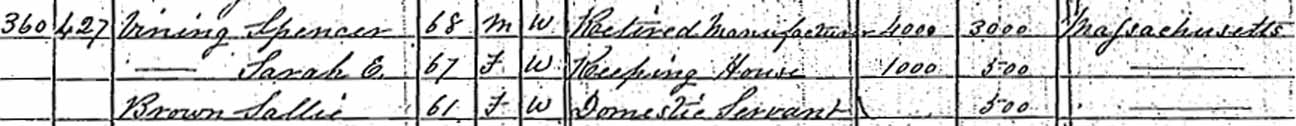 360 427 Vining Spencer 68 M W Retired Manufacturer 4000 3000 Massachusetts
—— Sarah E. 67 F W Keeping House 1000 500 ——
Brown Sallie 61 F W Domestic Servant 500 ——